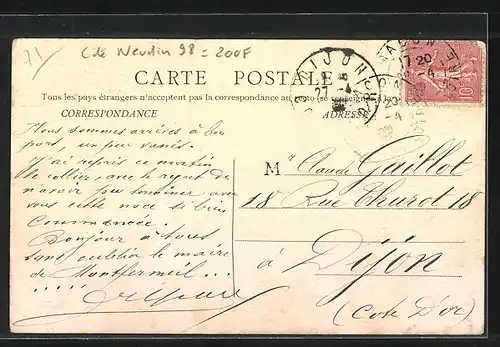 71
Cote Neudin 98 = 200F
DIJON
27 -4
MACON
17 20
-4
10
CARTE POSTALE
Tous les pays étrangers n'acceptent pas la correspondance au recto (se renseigner à la
CORRESPONDANCE
ADRESSE
Nous sommes arrivés à bon
port, un peu vanés.
J'ai repris ce matin
le collier, avec le regret de
n'avoir pu terminer avec
vous cette noce si bien
commencée.
Bonjour à tous
sans oublier le maire
de Montfermeil ...
.....
Mr Claude Gaillot
18 Rue Thurot 18
à Dijon
(Cote D'or)